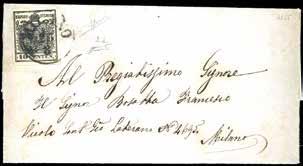 10 CENTES.
Al Pregiatissimo Signore
Il Signor Bosotta Francesco
Vicolo San Gio Laterano N. 4695
Milano